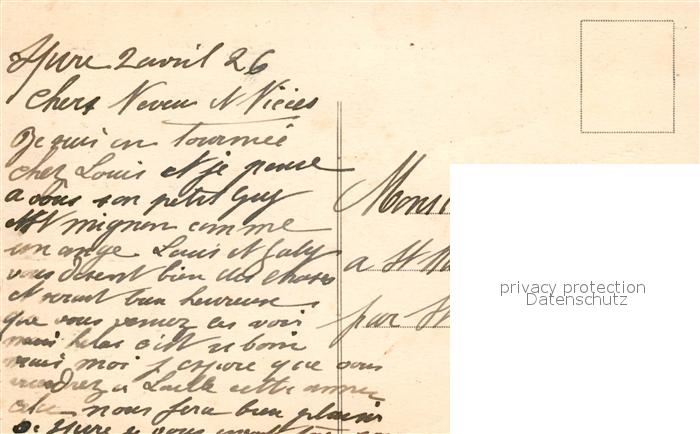 Hure 2 avril 26
Chers Neveu et Nièces
Je suis en tournée
chez Louis et je pense
a vous son petit Guy
est mignon comme
un ange Louis et Gaby
vous disent bien des choses
et seront bien heureuse
que vous veniez les voir
mais helas c'est si loin
mais moi j espère que vous
viendrez a cette année
cela nous fera bien plaisir
vous
Monsi
a St
par St
privacy protection
Datenschutz